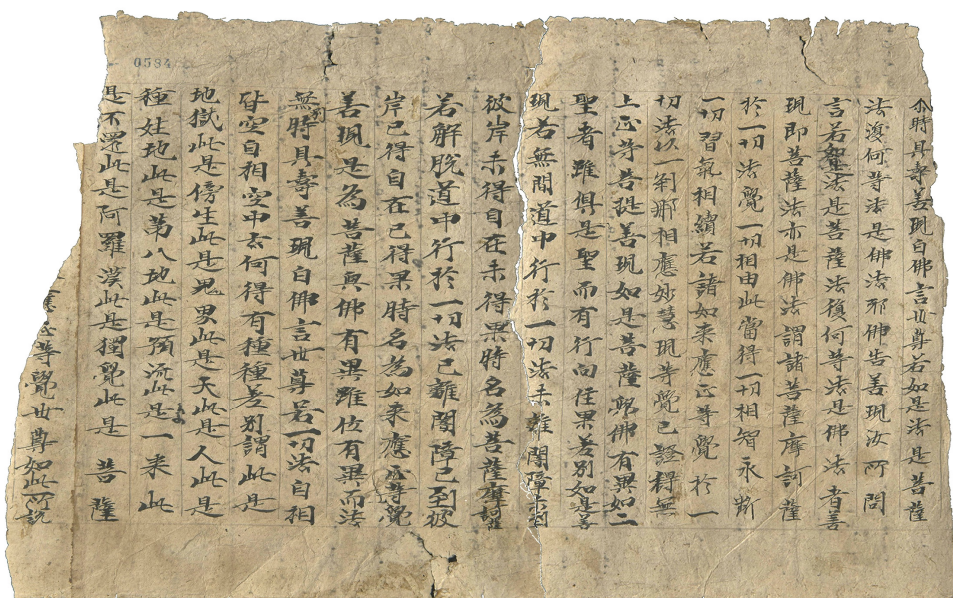 0584
尒時具壽善現白佛言世尊若如是法是菩薩
法復何等法是佛法耶佛告善現汝所問
言若等法是菩薩法復何等法是佛法者善
現即菩薩法亦是佛法謂諸菩薩摩訶薩
於一切法覺一切相由此當得一切相智永斷
一切習氣相續若諸如來應正等覺於一
切法以一剎那相應妙慧現等覺已證得無
上正等菩提善現如是菩薩與佛有異如二
聖者雖俱是聖而有行向住果差別如是善
現若無間道中行於一切法未離闇障未到
彼岸未得自在未得果時名為菩薩摩訶薩
若解脫道中行於一切法已離闇障已到彼
岸已得自在已得果時名為如來應正等覺
善現是為菩薩與佛有異雖位有異而法
無別時具壽善現白佛言世尊若一切法自相
皆空自相空中云何得有種種差別謂此是
地獄此是傍生此是鬼界此是天此是人此是
種姓地此是第八地此是預流此是一來此
是不還此是阿羅漢此是獨覺此是菩薩
應正等覺世尊如此所說